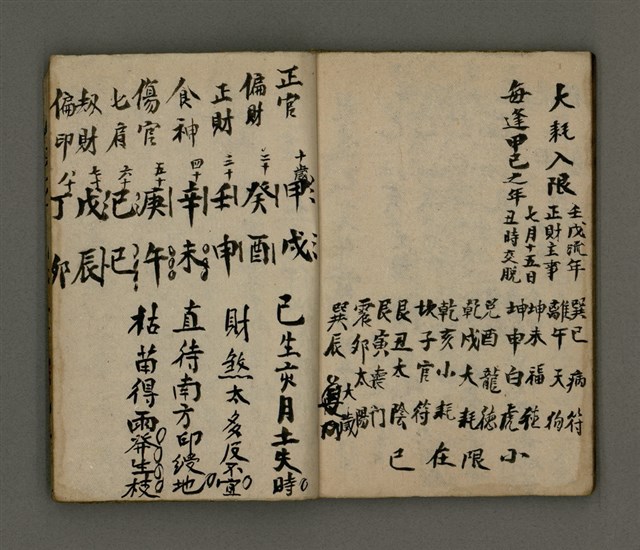 大耗入限
壬戌流年
正財主事
每逢甲己之年
七月十五日
丑時交脫
巽巳病符
離午天狗
坤未福德
坤申白虎
兌酉龍德
乾戌大耗
乾亥小耗
坎子官符
艮丑太陰
艮寅喪門
震卯太陽
巽辰
大歲
小限在巳
正官 十歲 甲戌
偏財 二十 癸酉
正財 三十 壬申
食神 四十 辛未
傷官 五十 庚午
七肩 六十 己巳
刼財 七十 戊辰
偏印 八十 丁卯
己生亥月土失時
財煞太多反不宜
直待南方印綬地
枯苗得雨發生枝